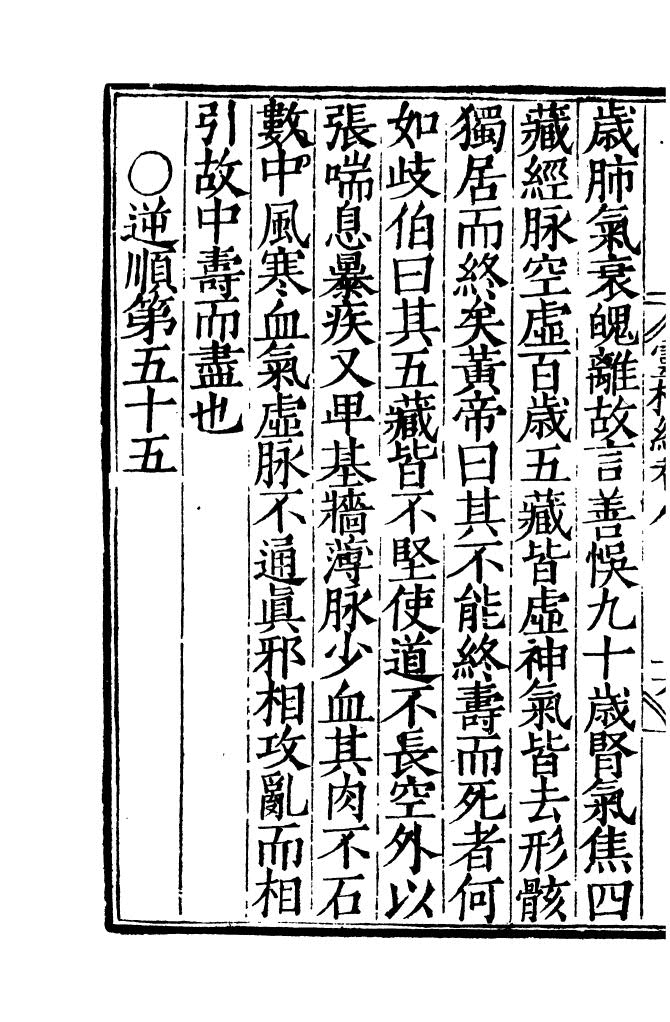 歲肺氣衰魄離故言善悞九十歲腎氣焦四
藏經脉空虛百歲五藏皆虛神氣皆去形骸
獨居而終矣黃帝曰其不能終壽而死者何
如歧伯曰其五藏皆不堅使道不長空外以
張喘息暴疾又卑基牆薄脉少血其肉不石
數中風寒血氣虛脉不通眞邪相攻亂而相
引故中壽而盡也
○逆順第五十五